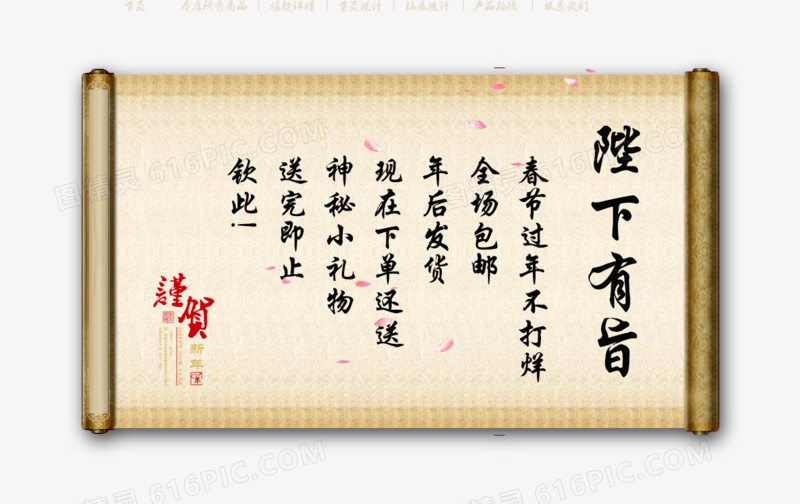 首页 本店所有商品 爆款详情 首页设计 络展设计 产品拍摄 联系我们
陛下有旨
春节过年不打烊
全场包邮
年后发货
现在下单还送
神秘小礼物
送完即止
钦此!
謹賀
新年
HAPPY NEW YEAR
图精灵 616PIC.COM